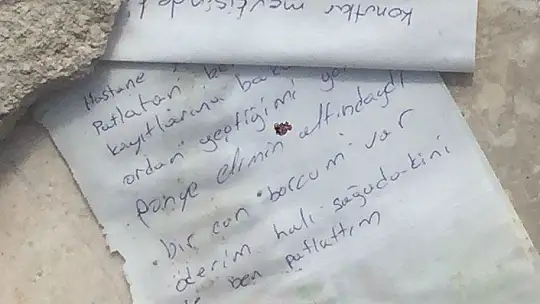 konutlar mevkisinde
Hastane
Patlatan be
kayıtlarına bakı
ordan geçtiğimi ye
pençe elimin altındaydı
bir can borcum var
öderim halı sağdakini
ben patlattım